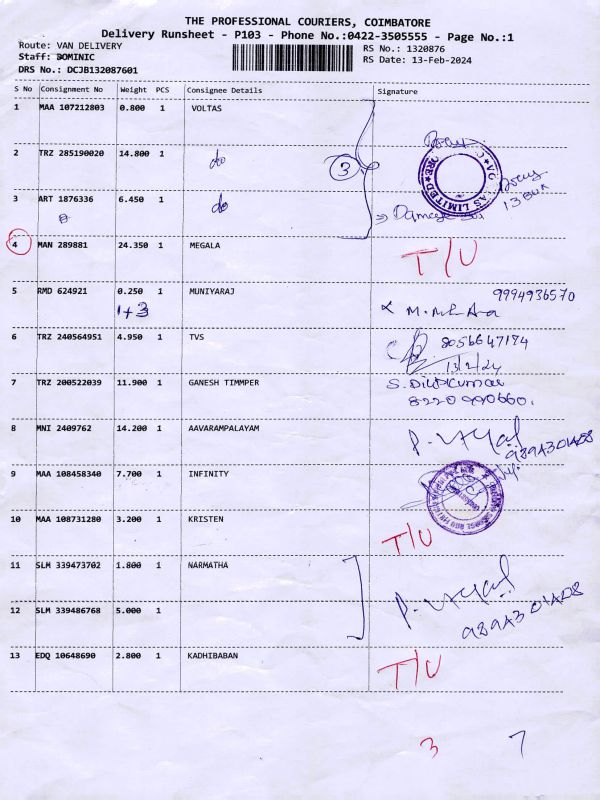 THE PROFESSIONAL COURIERS, COIMBATORE
Delivery Runsheet - P103 - Phone No.:0422-3505555 - Page No.:1
Route: VAN DELIVERY RS No.: 1320876
Staff: DOMINIC RS Date: 13-Feb-2024
DRS No.: DCJB132087601
S No Consignment No Weight PCS Consignee Details Signature
1 MAA 107212803 0.800 1 VOLTAS
2 TRZ 285190020 14.800 1 do
3
LIMITED
3 ART 1876336 6.450 1 do
4 MAN 289881 24.350 1 MEGALA T/U
5 RMD 624921 0.250 1 MUNIYARAJ 9994936570
1+3
6 TRZ 240564951 4.950 1 TVS 8056647174
13/2/24
7 TRZ 200522039 11.900 1 GANESH TIMMPER S. Dilipkumar
8220990660.
8 MNI 2409762 14.200 1 AAVARAMPALAYAM
9 MAA 108458340 7.700 1 INFINITY
10 MAA 108731280 3.200 1 KRISTEN T/U
11 SLM 339473702 1.800 1 NARMATHA
12 SLM 339486768 5.000 1
13 EDQ 10648690 2.800 1 KADHIBABAN T/U
3 7